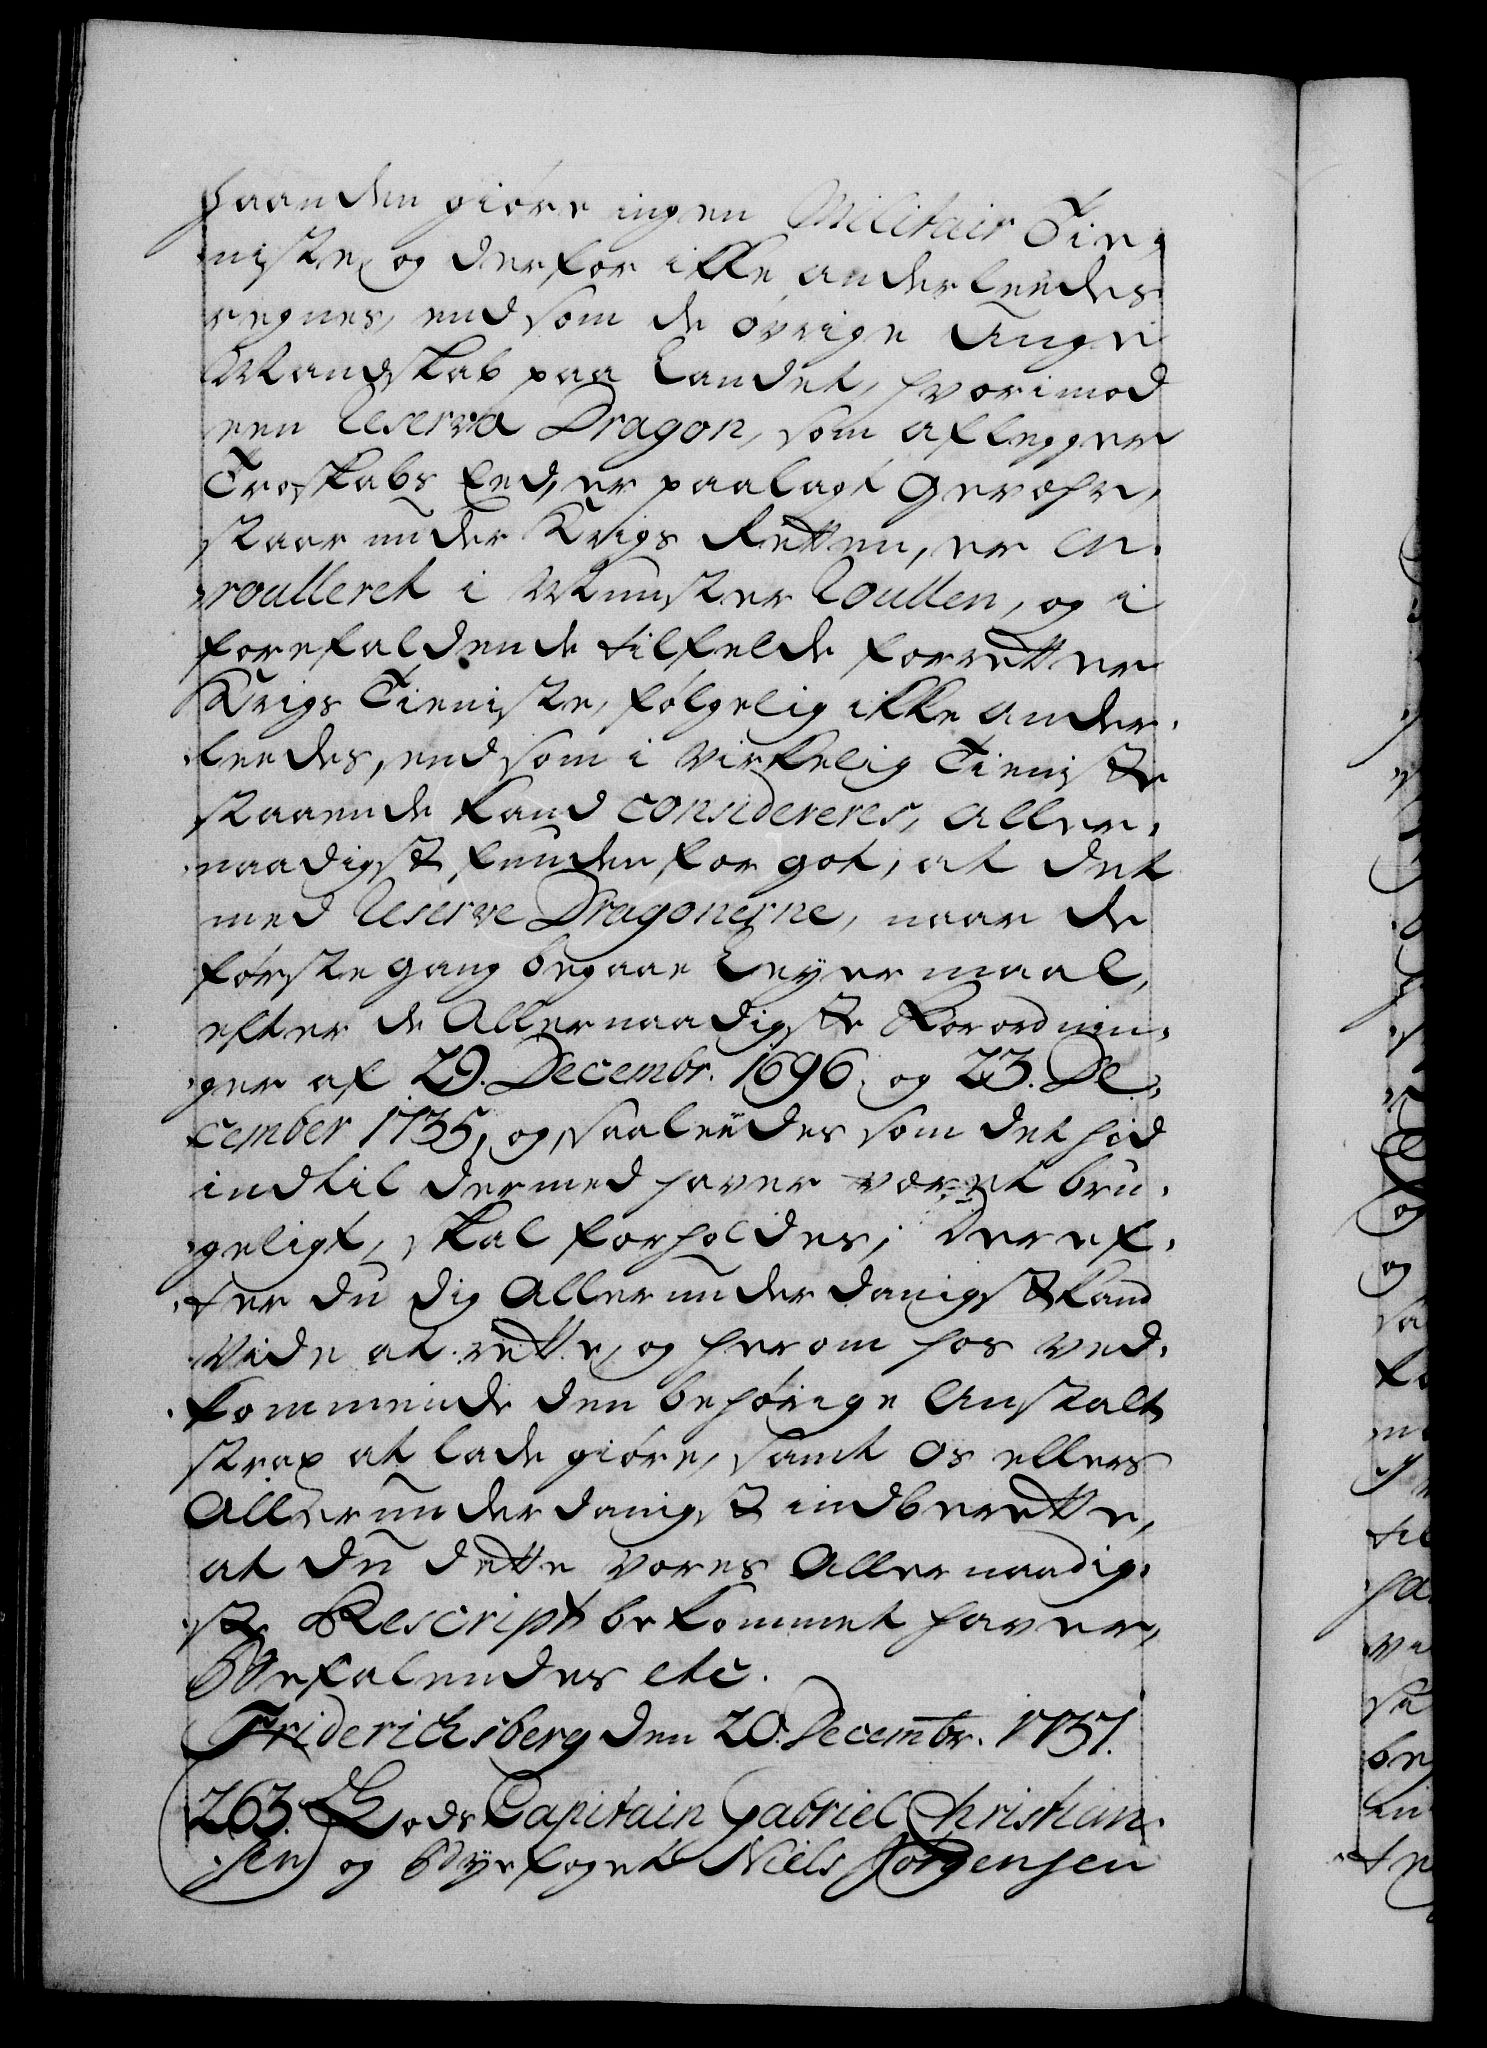 haanden giøre ingen Militair Tie-
niste, og derfor ikke anderleedes
regnes, end som de øvrige Unge
Mandskab paa Landet, hvorimod
een Reserve Dragon, som aflegger
Troskabs Eed, er paalagt Gevæhr,
staar under Krigs Retten, er en-
roulleret i Mynster Roullen, og i
forefaldende tilfelde forretter
Krigs Tieniste, følgelig ikke ander-
leedes, end som i virkelig Tieniste
staaende kand considereres, aller-
naadigst funden for got, at det
med Reserve Dragonerne, naar de
første gang begaae Leyermaal,
efter de Allernaadigste Forordnin-
ger af 29. Decembr. 1696. og 23. De-
cember 1735, og saaleedes som det hid
indtil dermed haver været bru-
geligt, skal forholdes; Deref-
ter du dig Allerunderdanigst kand
vide at rette, og herom hos ved-
kommende den behørige Anstalt
strax at lade giøre, samt os ellers
Allerunderdanigst indberette,
at du dette vores Allernaadig-
ste Rescript bekommet haver,
Befalendes etc.
Friderichsberg den 20. Decembr. 1737.
263. Lods Capitain Gabriel Christian-
sen og Byefoget Niels Jørgensen